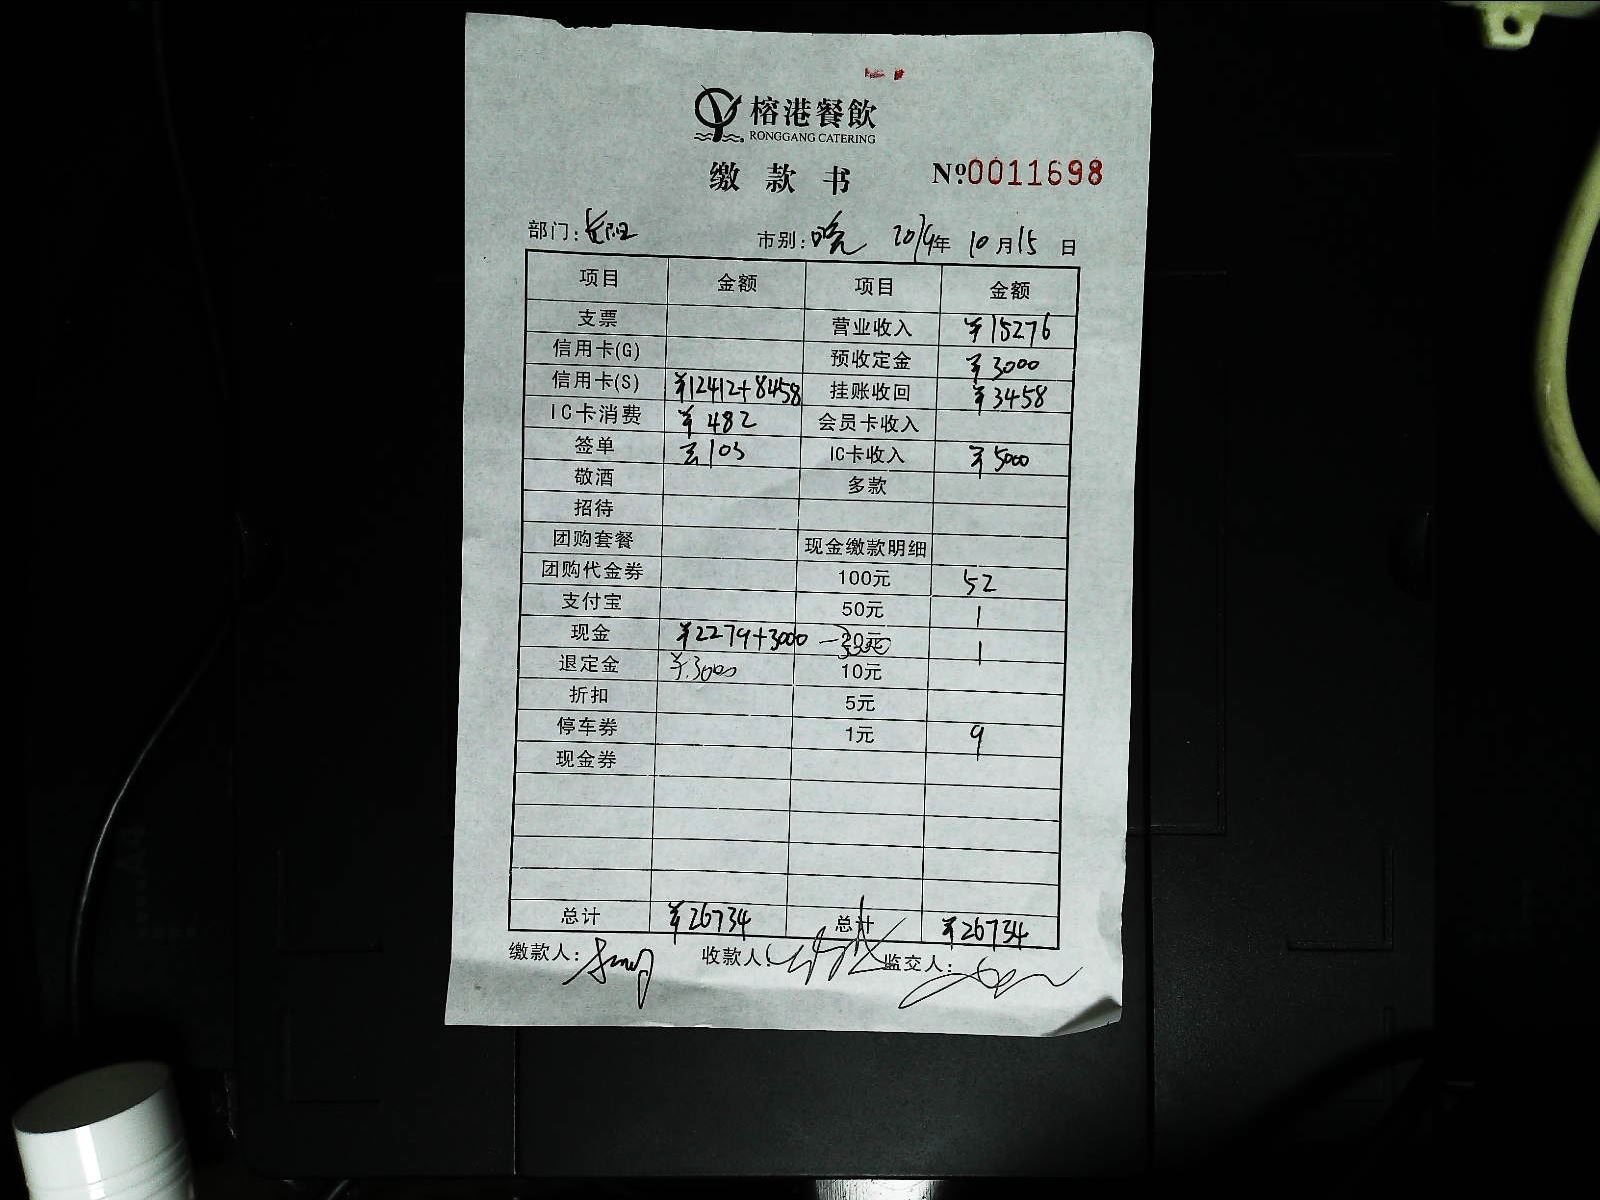 榕港餐飲
RONGGANG CATERING
缴款书 №0011698
部门:长阳 市别:晚 2014年10月15日
项目 金额 项目 金额
支票 营业收入 ¥15276
信用卡(G) 预收定金 ¥3000
信用卡(S) ¥12412+8458 挂账收回 ¥3458
IC卡消费 ¥482 会员卡收入
签单 ¥103 IC卡收入 ¥5000
敬酒 多款
招待
团购套餐 现金缴款明细
团购代金券 100元 52
支付宝 50元 1
现金 ¥2279+3000 20元 1
退定金 ¥3000 10元
折扣 5元
停车券 1元 9
现金券
总计 ¥26734 总计 ¥26734
缴款人: 收款人: 监交人: